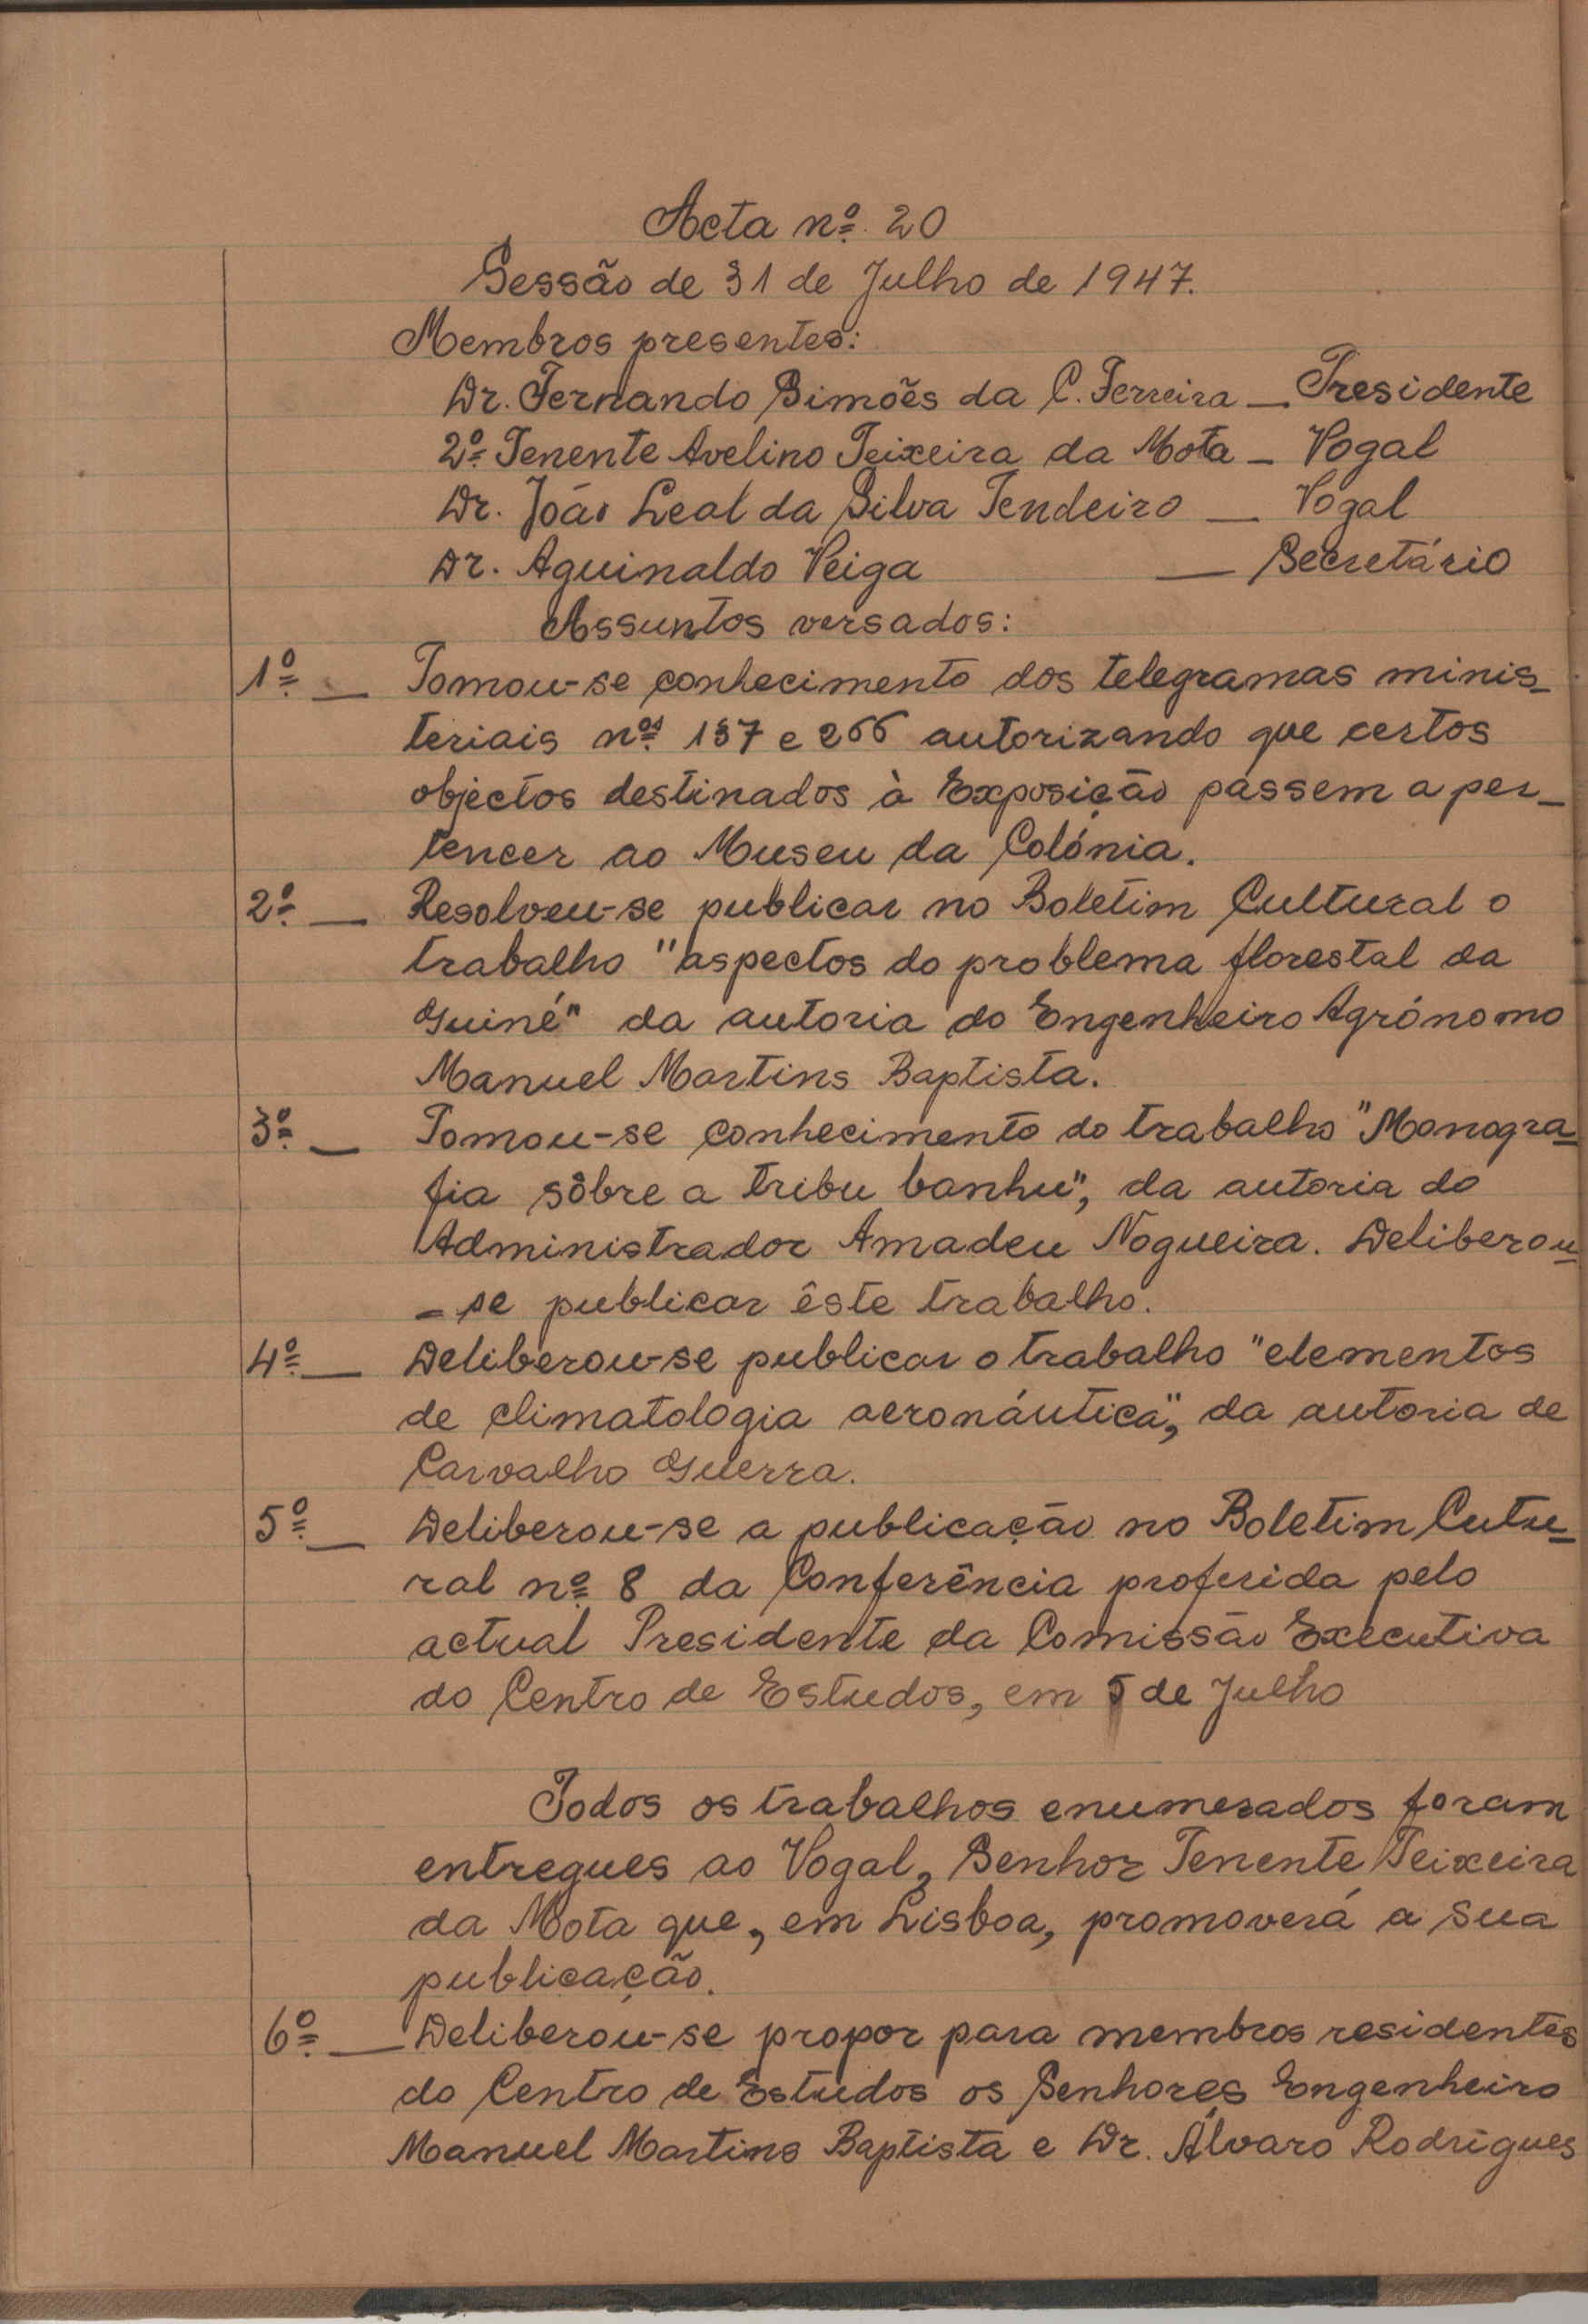 Acta nº 20
Sessão de 31 de Julho de 1947.
Membros presentes:
Dr. Fernando Simões da C. Ferreira — Presidente
2º Tenente Avelino Teixeira da Mota — Vogal
Dr. João Leal da Silva Tendeiro — Vogal
Dr. Aguinaldo Veiga — Secretário
Assuntos versados:
1º — Tomou-se conhecimento dos telegramas minis-
teriais nos 137 e 266 autorizando que certos
objectos destinados à Exposição passem a per-
tencer ao Museu da Colónia.
2º — Resolveu-se publicar no Boletim Cultural o
trabalho "aspectos do problema florestal da
Guiné" da autoria do Engenheiro Agrónomo
Manuel Martins Baptista.
3º — Tomou-se conhecimento do trabalho "Monogra-
fia sôbre a tribu banhu", da autoria do
Administrador Amadeu Nogueira. Deliberou-
-se publicar êste trabalho.
4º — Deliberou-se publicar o trabalho "elementos
de climatologia aeronáutica", da autoria de
Carvalho Guerra.
5º — Deliberou-se a publicação no Boletim Cutu-
ral nº 8 da Conferência proferida pelo
actual Presidente da Comissão Executiva
do Centro de Estudos, em 5 de Julho
Todos os trabalhos enumerados foram
entregues ao Vogal, Senhor Tenente Teixeira
da Mota que, em Lisboa, promoverá a sua
publicação.
6º — Deliberou-se propor para membros residentes
do Centro de Estudos os Senhores Engenheiro
Manuel Martins Baptista e Dr. Álvaro Rodrigues